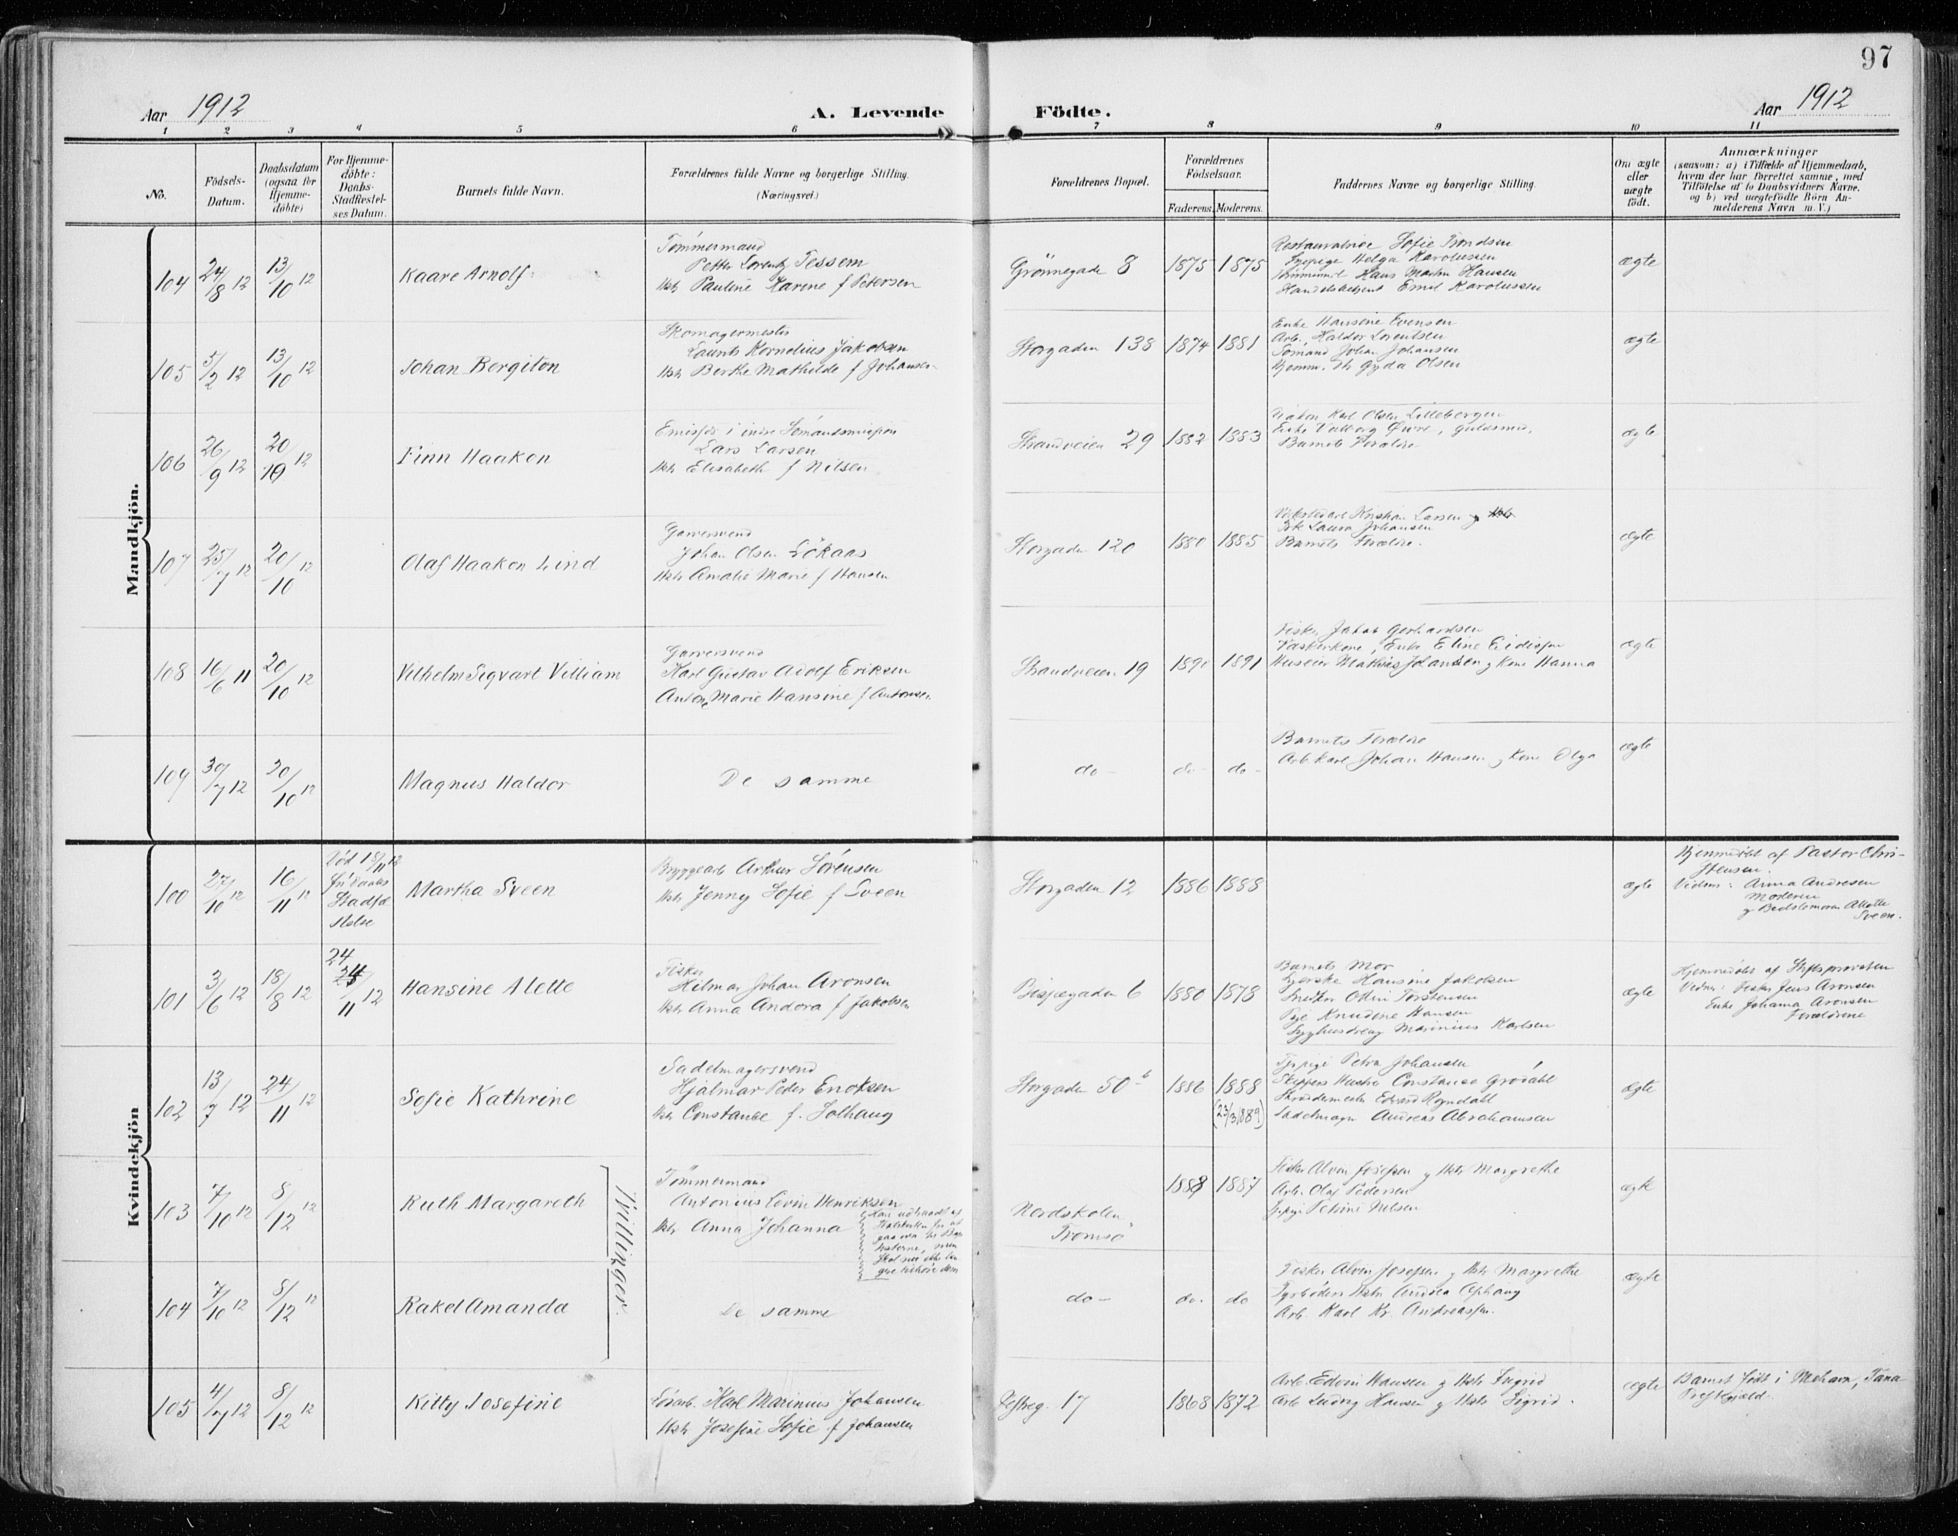 97
Aar 1912
A. Levende
Födte.
Aar 1912
1 2 3 4 5 6 7 8 9 10 11
No.
Födsels-
Datum.
Daabsdatum
(ogsaa for
Hjemme-
döbte)
For Hjemme-
döbte:
Daabs-
Stadfæstel-
ses Datum.
Barnets fulde Navn.
Forældrenes fulde Navne og borgerlige Stilling.
(Næringsvei.)
Forældrenes Bopæl.
Forældrenes
Födselsaar.
Faderens. Moderens.
Faddernes Navne og borgerlige Stilling.
Om ægte
eller
uægte
födt.
Anmærkninger
(saasom: a) i Tilfælde af Hjemmedaab,
hvem der har forrettet samme, med
Tilföielse af to Daabsvidners Navne,
og b) ved uægtefödte Börn An-
melderens Navn m. V.)
Mandkjön.
104 24/8 12 13/10 12
Kaare Arnolf
Tømmermand
Petter Lorentz Tessem
Hstr Pauline Karine f Petersen
Grønnegade 8 1875 1875
Restauratrice Sofie Trondsen
Sypige Helga Karolussen
Hans Martin Hansen
Handelsbetjent Emil Karolussen
ægte
105 5/2 12 13/10 12
Johan Bergiton
Skomagermester
Laurits Kornelius Jakobsen
Hstr Berthe Mathilde f Johansen
Storgaden 138 1874 1881
Enke Hansine Evensen
Arb. Haldor Lorentsen
Sømand Johan Johansen
Gyda Olsen
ægte
106 26/9 12 20/10 12
Finn Haakon
Emissær i indre Sømandsmission
Lars Larsen
Hstr Elisabeth f Nilsen
Strandveien 29 1882 1883
Diakon Karl Olsen Lillebergen
Enke Valborg Øwre, Guldsmed
Barnets Forældre
ægte
107 25/7 12 20/10 12
Olaf Haakon Lind
Garversvend
Johan Olsen Løkaas
Hstr Amalie Marie f Hansen
Storgaden 120 1880 1885
Kristian Larsen og Hstr
Laura Johansen
Barnets Forældre.
ægte
108 16/6 11 20/10 12
Vilhelm Sigvart Villiam
Garversvend
Karl Gustav Adolf Eriksen
Antone Marie Hansine f Antonsen
Strandveien 19 1890 1891
Fisker Jakob Gerhardsen
Vaskerkone, Enke Eline Eidissen
Huseier Mathias Johansen og Kone Hanna
ægte
109 30/7 12 20/10 12
Magnus Haldor
De samme
do - do - do -
Barnets Forældre
Arb.karl Johan Hansen og Kone Olga
ægte
Kvindekjön
100 27/10 12 16/11 12
Død 18/11 12
før Daabs
Stadfæ
stelse
Martha Sveen
Bryggearb Arthur Sørensen
Hstr Jenny Sofie f Sveen
Storgaden 12 1886 1888
ægte
Hjemmedøbt af Pastor Chri-
stensen.
Vidner: Anna Andresen
Moderen
og Bedstemoren
Sveen.
101 3/6 12 18/8 12
24
24/11 12
Hansine Alette
Fisker
Hilmar Johan Aronsen
Hstr Anna Andora f Jakobsen
Bispegaden 6 1880 1878
Barnets Mor
Syerske Hansine Jakobsen
Snedker Odin Torstensen
Pige Knudine Hansen
Marinius Karlsen
ægte
Hjemmedøbt af Stiftsprovsten
Vidner: Fisker Jens Aronsen
Enke Johanna Aronsen
Forældrene
102 13/7 12 24/11 12
Sofie Kathrine
Sadelmagersvend
Hjalmar Peder Enoksen
Hstr Constanse f. Solhaug
Storgaden 50 b 1886 1888
(23/3 1889)
Sypige Petra Johansen
Skippers Hustru Constanse Grødahl
Skrædermester Edvard Rogndahl
Sadelmager Andreas Abrahamsen
ægte
103 7/10 12 8/12 12
Ruth Margareth
Tvillinger.
Tømmermand
Antonius Levin Henriksen
Hstr Anna Johanna
Nordskolen,
Tromsø
1888 1887
Fisker Alvin Josefsen og Hstr Margrethe
Arb. Olaf Pedersen
Sypige Petrine Nilsen
ægte
104 7/10 12 8/12 12
Rakel Amanda
De samme
do - do. do
Fisker Alvin Josefsen og Hstr Margrethe
Fyrbøders Hstr Andrea Ophaug
Arb. Karl Kr. Andreassen.
ægte
105 4/7 12 8/12 12
Kitty Josefine
Løsarb. Karl Marinius Johansen
Hstr Josefine Sofie f Johansen
17 1868 1872
Arb. Edvin Hansen og Hstr Sigrid
Arb Ludvig Hansen og Hstr Sigrid.
ægte
Barnet født i Mehavn, Tana
Præstegjæld.